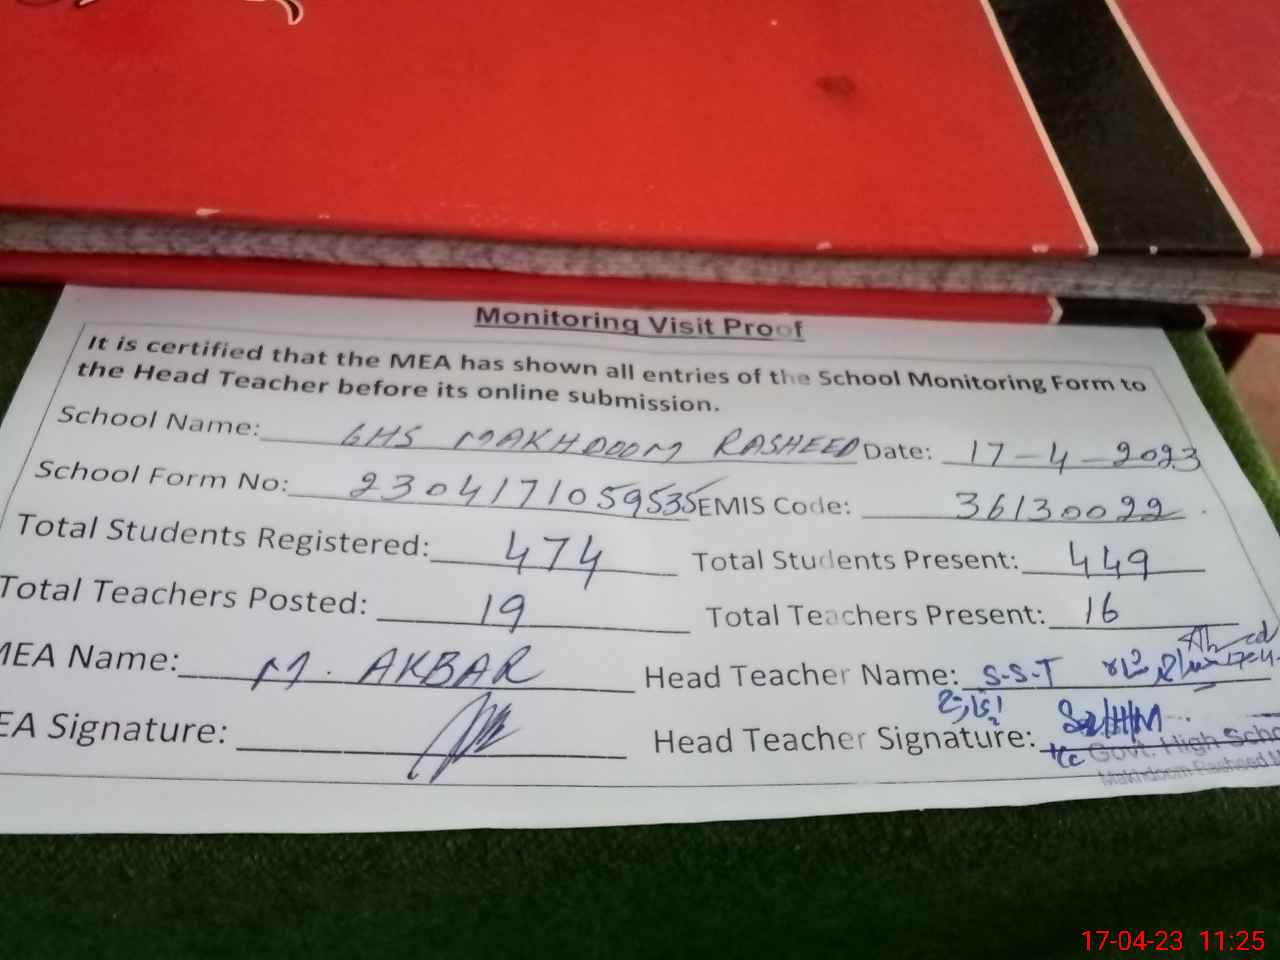 Monitoring Visit Proof
It is certified that the MEA has shown all entries of the School Monitoring Form to
the Head Teacher before its online submission.
School Name: GHS MAKHDOOM RASHEED Date: 17-4-2023
School Form No: 2304171059535 EMIS Code: 36130022
Total Students Registered: 474 Total Students Present: 449
Total Teachers Posted: 19 Total Teachers Present: 16
MEA Name: M. AKBAR Head Teacher Name: S-S-T
EA Signature: Head Teacher Signature:
Govt. High Scho
Makhdoom Rasheed
17-04-23 11:25